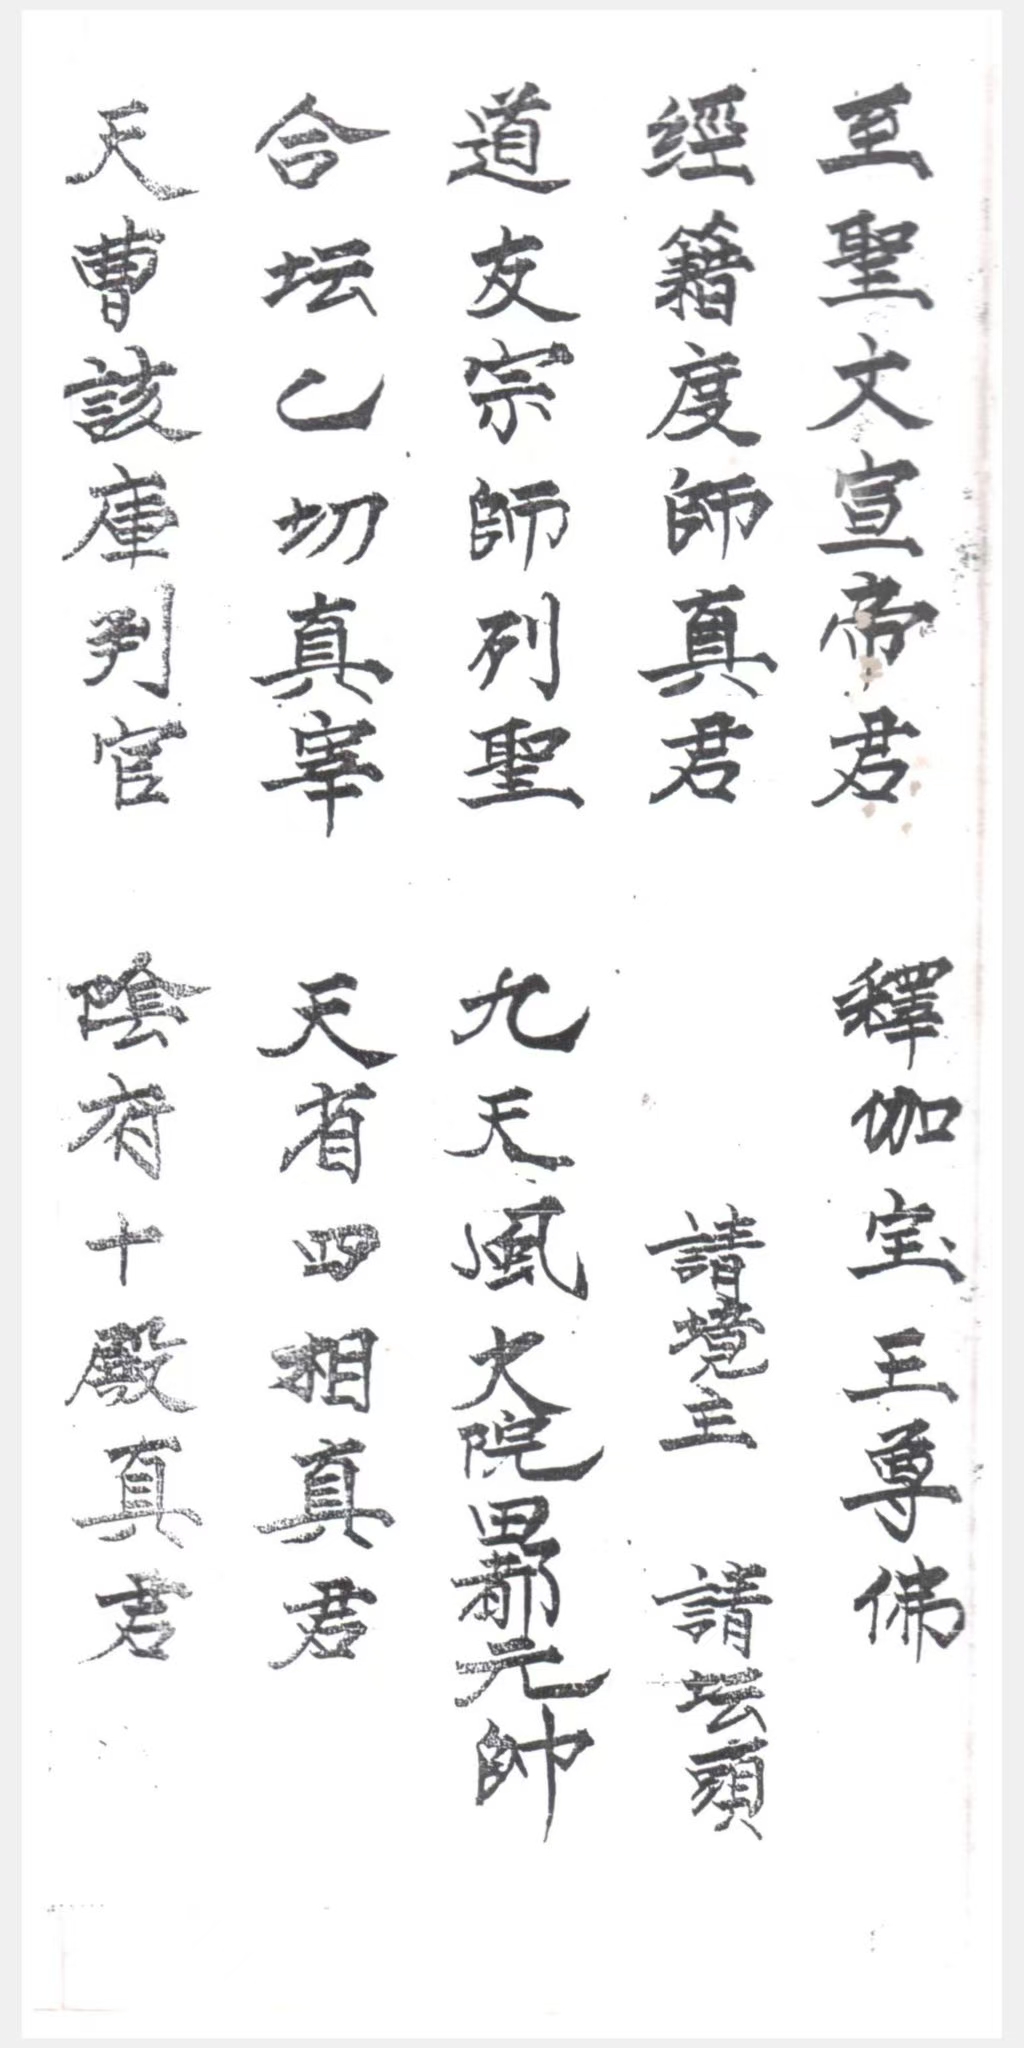 至聖文宣帝君　釋伽宝王尊佛
經籍度師真君　請境主　請坛頭
道友宗師列聖　九天風火院田都元帥
合坛乙切真宰　天省四相真君
天曹該庫判官　陰府十殿真君